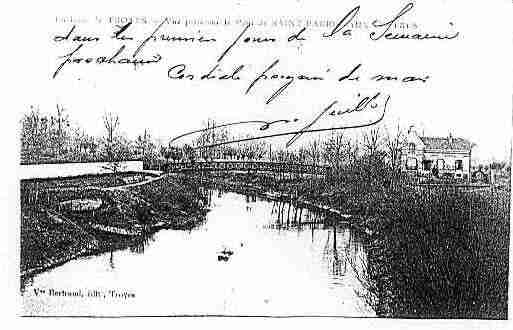 Environs de TROYES — Vue prise sur le Pont de SAINT-PARRES-AUX-TERTRES
dans les premiers jours de la Semaine
prochaine
Cordiale poignée de main
Vve Bertrand, édit., Troyes